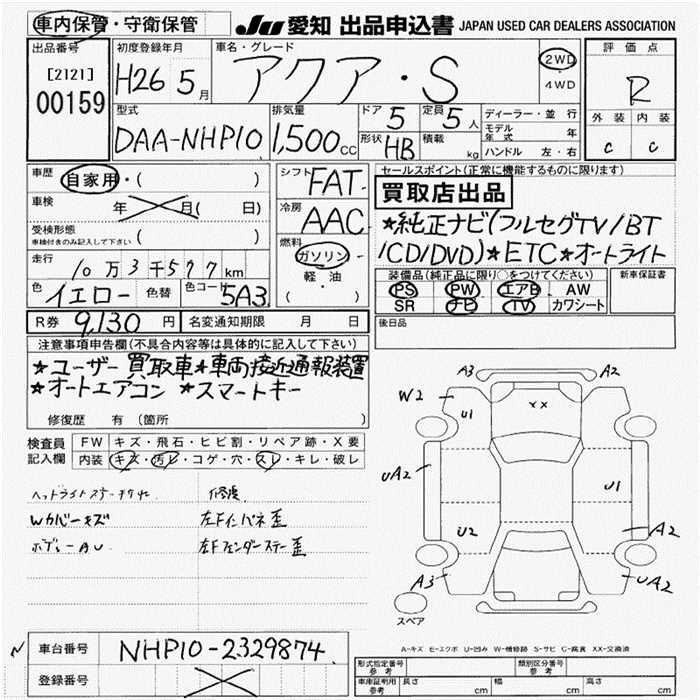 車内保管・守衛保管 JU 愛知 出品申込書 JAPAN USED CAR DEALERS ASSOCIATION
出品番号 初度登録年月 車名・グレード 2WD 評価点
[2121] H26 5月 アクア・S 4WD R
00159
型式 排気量 ドア 5 定員 5人 ディーラー・並行 外装 内装
DAA-NHP10 1,500cc 形状 HB 積載 kg モデル年式 年 c c
ハンドル 左・右
車歴 自家用・( ) シフト FAT セールスポイント(正常に機能するものに限ります)
車検 年 月( 日) 冷房 AAC 買取店出品
受検形態 ( ) ★純正ナビ(フルセグTV/BT
車検付きのみ記入して下さい 燃料 ガソリン /CD/DVD)★ETC★オートライト
走行 10万3千577km 軽・油 装備品(純正品に限り○をつけてください) 新車保証書
色 イエロー 色替 色コード 5A3 ( ) PS PW エアB AW
SR ナビ TV カワシート
R券 9,130円 名変通知期限 月 日 後日品
注意事項申告欄(不具合内容等は具体的に記入して下さい)
★ユーザー買取車★車両接近通報装置
★オートエアコン ★スマートキー
修復歴 有(箇所 )
検査員 FW キズ・飛石・ヒビ割・リペア跡・X要
記入欄 内装 キズ・汚レ・コゲ・穴・スレ・キレ・破レ
A3 A2
W2 U1 XX
UA2 U1
U2 A2
A3 UA2
スペア
修復
Wカバーキズ 左Fインパネ歪
ボディーAU 左Fフェンダーステー歪
A-キズ E-エクボ U-凹み W-補修跡 S-サビ C-腐食 XX-交換済
車台番号 NHP10-2329874
登録番号
形式指定番号 参考 類別区分番号 参考
車庫証明用 参考 長さ cm 幅 cm 高さ cm